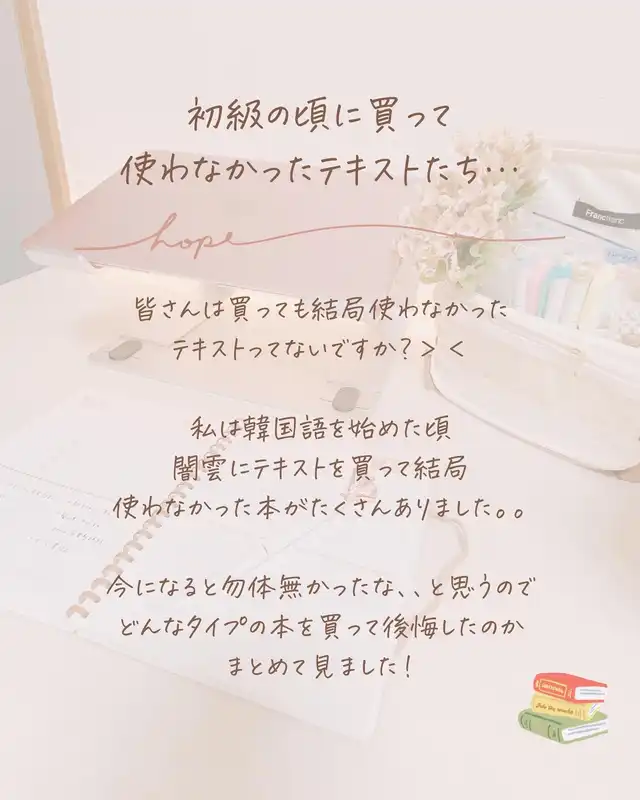 初級の頃に買って
使わなかったテキストたち…
hope
Franc franc
皆さんは買っても結局使わなかった
テキストってないですか?> <
私は韓国語を始めた頃
闇雲にテキストを買って結局
使わなかった本がたくさんありました。。
今になると勿体無かったな、、と思うので
どんなタイプの本を買って後悔したのか
まとめて見ました!